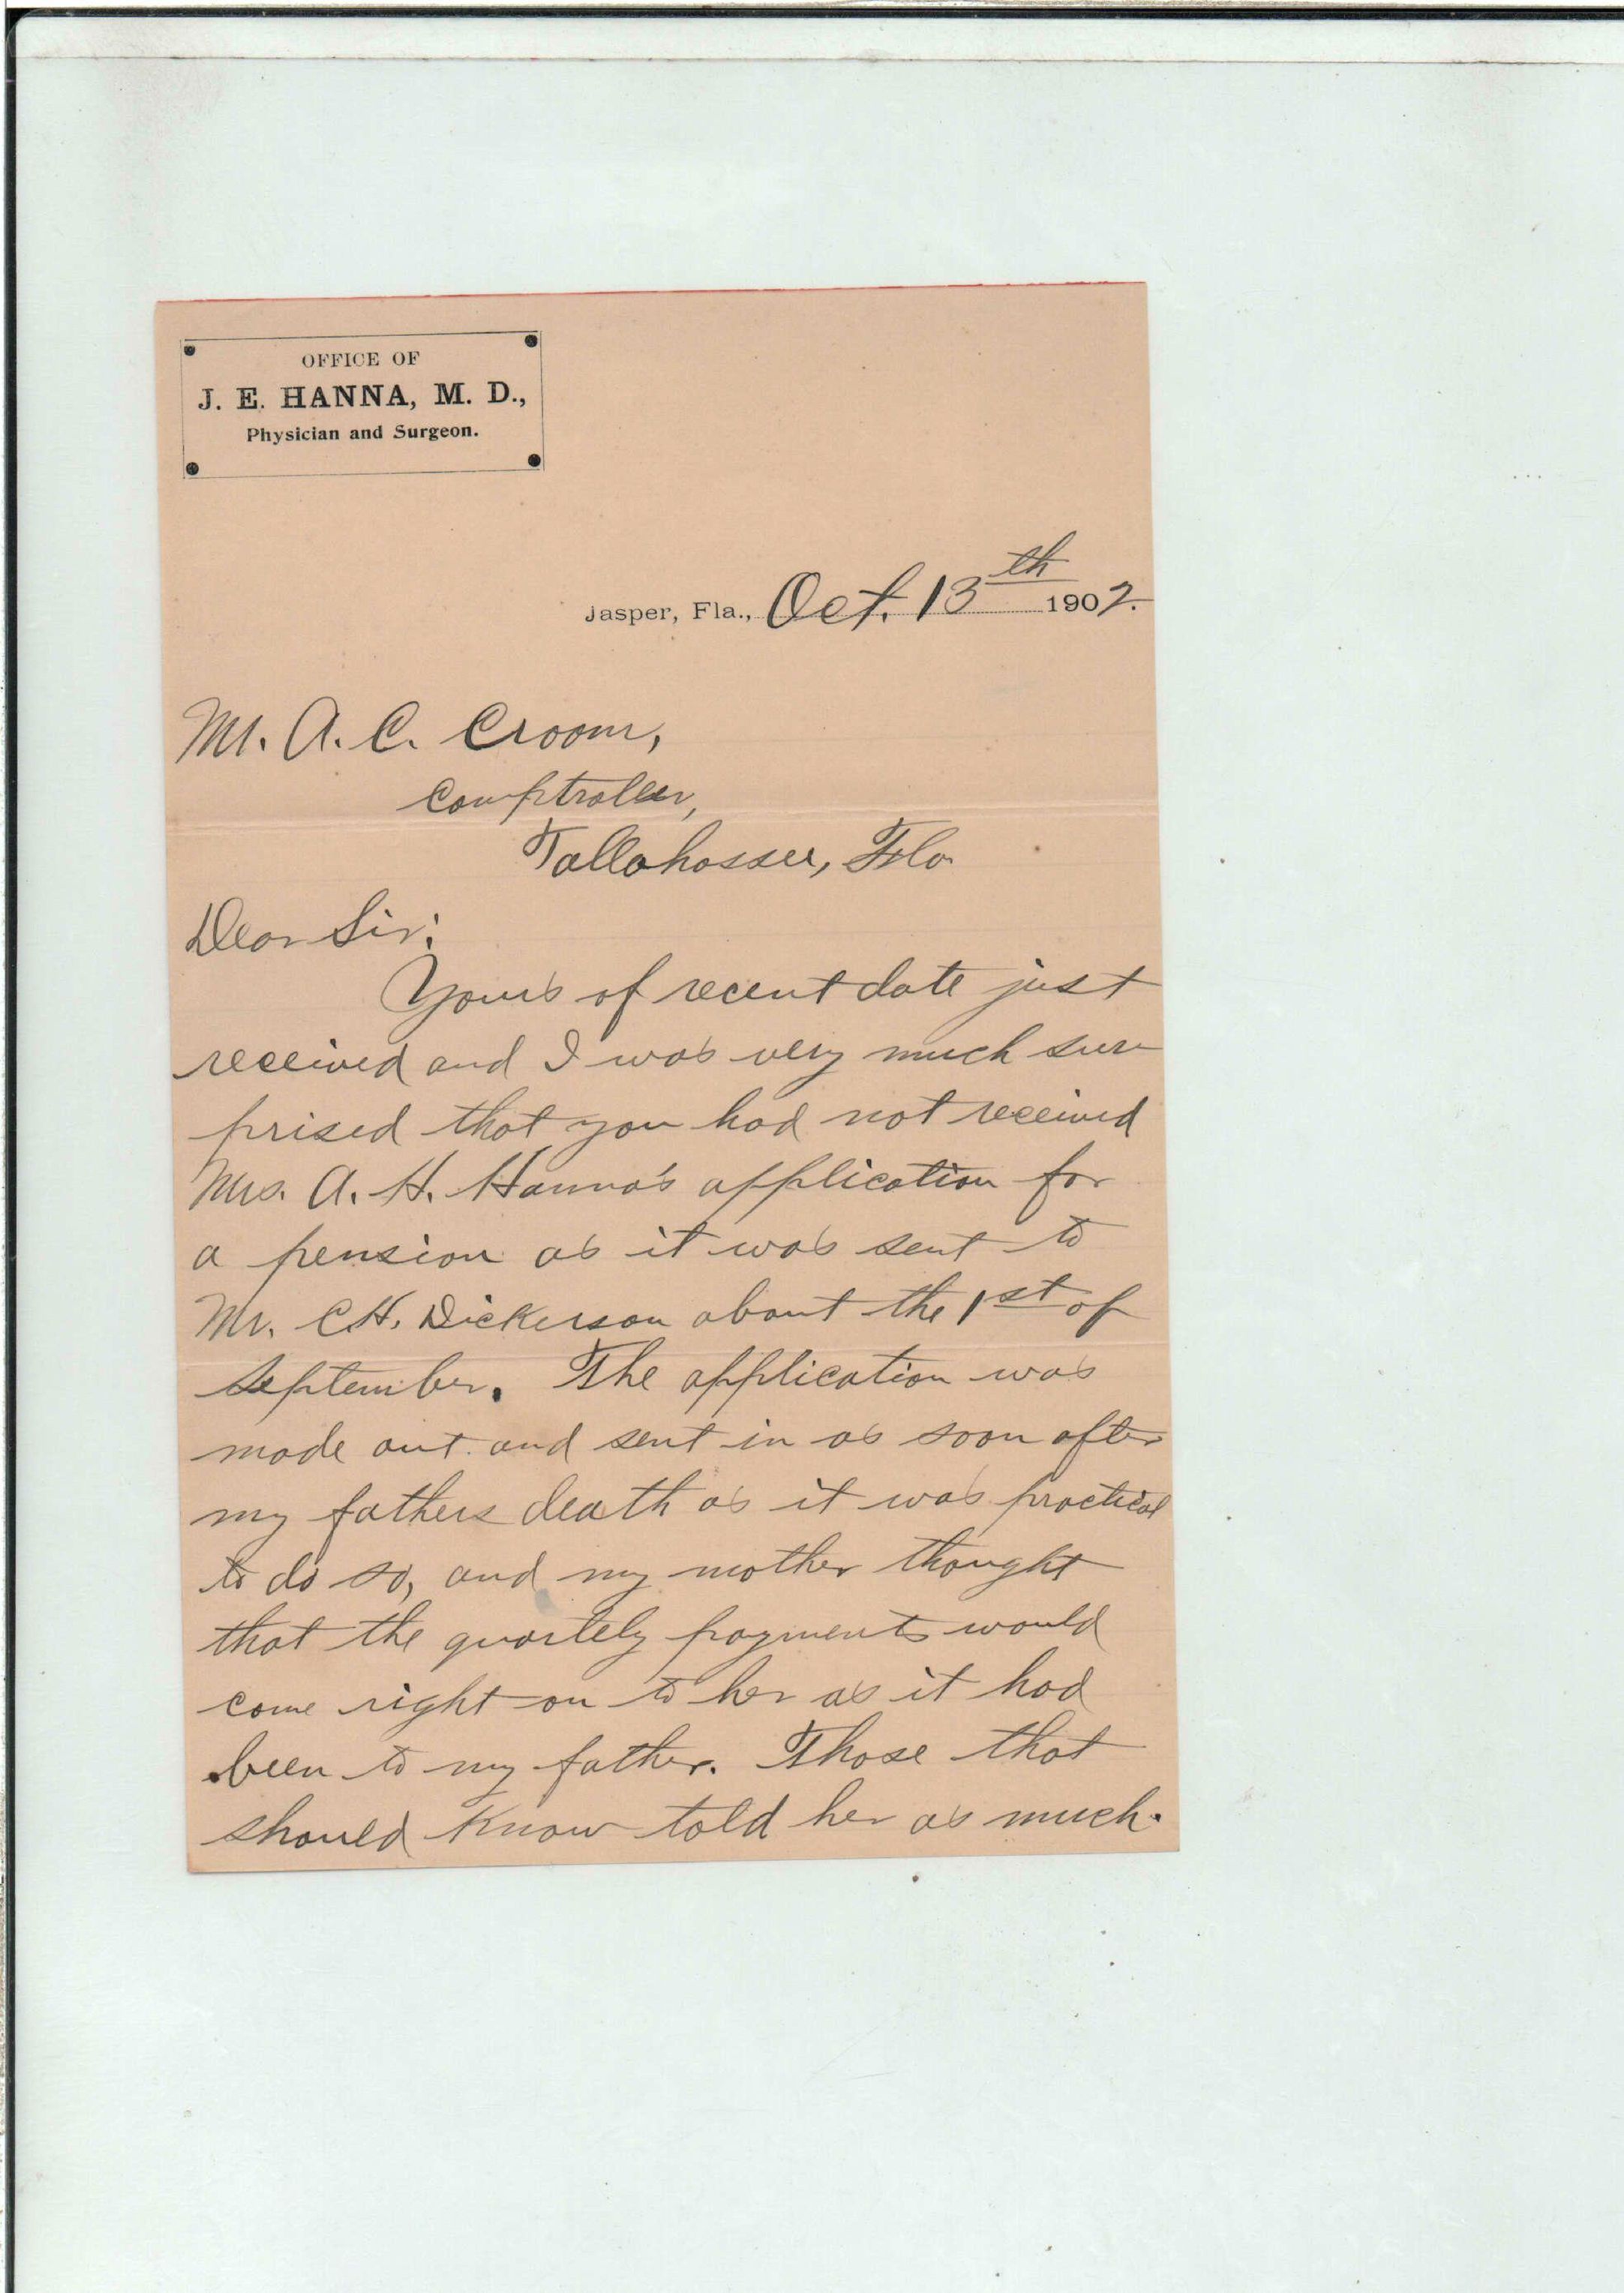 OFFICE OF
J. E. HANNA, M. D.,
Physician and Surgeon.
Jasper, Fla., Oct. 13th 1902.
Mr. A. C. Croom,
Comptroller,
Tallahassee, Fla.
Dear Sir:
Yours of recent date just
received and I was very much sur
prised that you had not received
Mrs. A. H. Hanna's application for
a pension as it was sent to
Mr. C.H. Dickerson about the 1st of
September. The application was
made out and sent in as soon after
my fathers death as it was practical
to do so, and my mother thought
that the quartely payments would
come right on to her as it had
been to my father. Those that
should know told her as much.